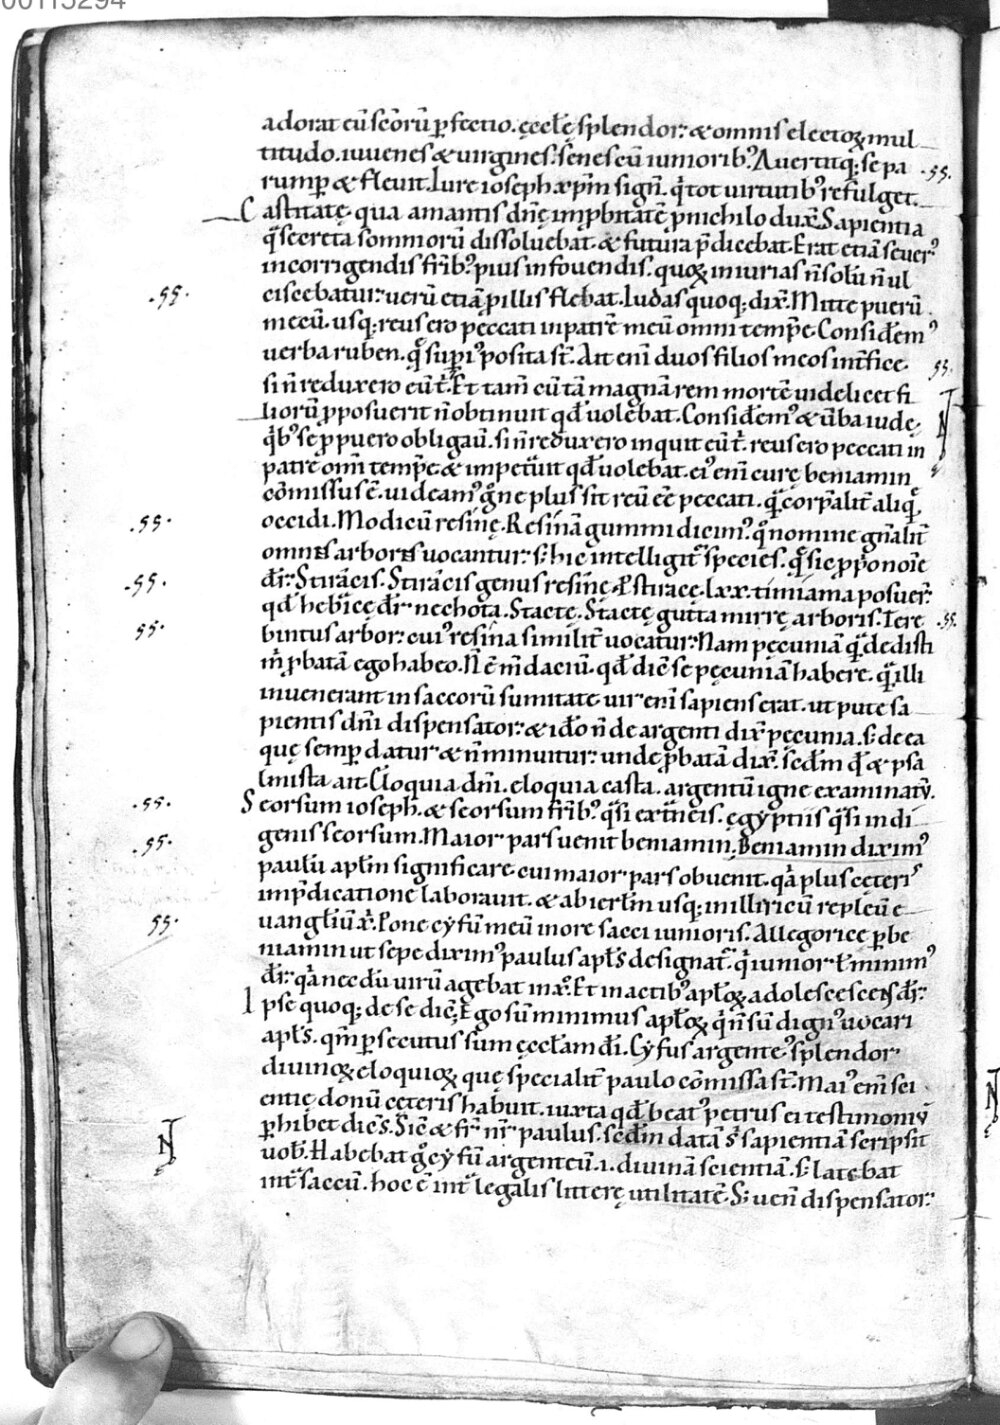 00115294
adorat eū scōrū ꝑfectio. ęcctę splendor: & omnis electoꝝ mul
titudo. iuvenes & virgines: senes cū iuniorib; Avertitq; se pa .ss.
rumꝑ & flevit. Iure ioseph xp̄m sign̄. q̇ tot virtutib; refulget.
Castitatę qua amantis dn̄ę imꝓbitatē ꝓ nichilo dux̄. Sapientia
q̄ secreta somniorū dissoluebat. & futura p̄dicebat. Erat etiā sever᷒
in corrigendis fr̄ib; pius in fovendis. quoꝝ iniurias n̄ solū n̄ ul
.ss. ciscebatur: verū etiā ꝓ illis flebat. Iudas quoq; dix̄. Mitte puerū
mecū. usq; reus ero peccati in patrē meū omni temp̄e. Consid̄em᷒
verba ruben. q̄ sup̄i᷒ posita st̄. Ait eni duos filios meos int̄fice ss.
si n̄ reduxero eū t̄. Et tam̄ cū tā magnā rem mortē videlicet fi
liorū ꝓposuerit n̄ obtinuit qd̄ volebat. Consid̄em᷒ & v̄ba iudę N
q̄b᷒ se ꝓ puero obligav̄. si n̄ reduxero inquit eū t̄. reus ero peccati in
patrē om̄i temp̄e. & impet̄vit qd̄ volebat. ei᷒ eni curę beniamin
cōmissus ē. videam᷒ gͦ ne plus sit reū ēe peccati. q̄ corp̄alit̄ aliq̄
.ss. occidi. Modicū resinę. Resinā gummi dicim᷒. qͦ nomine gn̄alit̄
omnes arbores vocantur: s; hic intelligit̄ species. q̄ sic ꝓp̄o noīe
.ss. dr̄: Stirācis. Stirācis genus resinę ē stirace. lxx. timiama posuer̄:
qd̄ hebīcę dr̄ nechota. Stactę. Stactę gutta mirrę arboris. Tere .ss.
ss. bintus arbor: cui᷒ resina similit̄ vocatur: Nam pęcuniā q̄ dedisti
m̄ ꝓbatā ego habeo. N̄ ē m̄daciū. qd̄ dic̄ se pęcuniā habere. q̄ illi
invenerant in saccorū sumitate. vir eni sapiens erat. ut pute sa
pientis dn̄i dispensator: & iđo n̄ de argenti dix̄ pęcunia. s; de ea
quę semꝑ datur & n̄ minuitur: unde ꝓbatā dix̄. sed̄m qd̄ & psa
lmista ait. Eloquia dn̄i. eloquia casta. argentū igne examinatū.
.ss. Seorsum ioseph. & seorsum fr̄ib; q̄si ext̄neis. ęgyptiis q̄si indi
.ss. genis seorsum. Maior pars venit beniamin. Beniamin dixim᷒
paulū apl̄m significare. cui maior pars obvenit. q̄a plus ceteri᷒
in p̄dicatione laboravit. & ab ierl̄m usq; in illiricū replev̄ e
ss. vangliū x̄. Pone cyfū meū in ore sacci iunioris. Allegorice p̄ be
niamin ut sepe dixim᷒ paulus apl̄s designat̄. q̄ iunior ł minim᷒
dr̄: q̄a necdū virū agebat in x̄o. Et in actib᷒ apl̄oꝝ adolescescens dr̄:
Ipse quoq; de se dic̄; Ego sū minimus apl̄oꝝ q̄ n̄ sū dign᷒ vocari
apl̄s. qm̄ ꝑsecutus sum ęccłam dī. Cyfus argente᷒ splendor
divinoꝝ eloquioꝝ quę specialit̄ paulo cōmissa st̄. Mai᷒ eni sci
entię donū ceteris habuit. iuxta qd̄ beat᷒ petrus ei testimoniū
N ꝑhibet dicēs. Sic̄ & fr̄ nr̄ paulus. sed̄m datā s̄ sapientiā scripsit
vob̄. Habebat gͦ cyfū argenteū .i. divinā scientiā. s; latebat
int̄ saccū. hoc ē int̄ legalis litterę utilitatē. S; ven̄ dispensator: